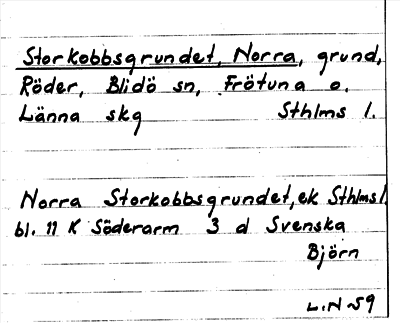 Storkobbsgrundet, Norra, grund,
Röder, Blidö sn, Frötuna o.
Länna skg Sthlms l.
Norra Storkobbsgrundet, ek Sthlms l
bl. 11 K Söderarm 3 d Svenska
Björn
L.N 59